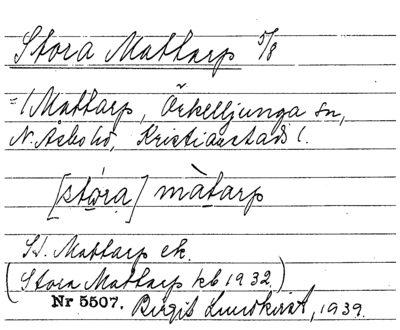 Stora Mattarp 5/8
= 1 Mattarp, Örkelljunga sn,
N. Åsbo hd, Kristianstads l.
[stóra] màtarp
St. Mattarp ek.
(Stora Mattarp kb 1932.)
Nr 5507. Birgit Lundkvist, 1939.